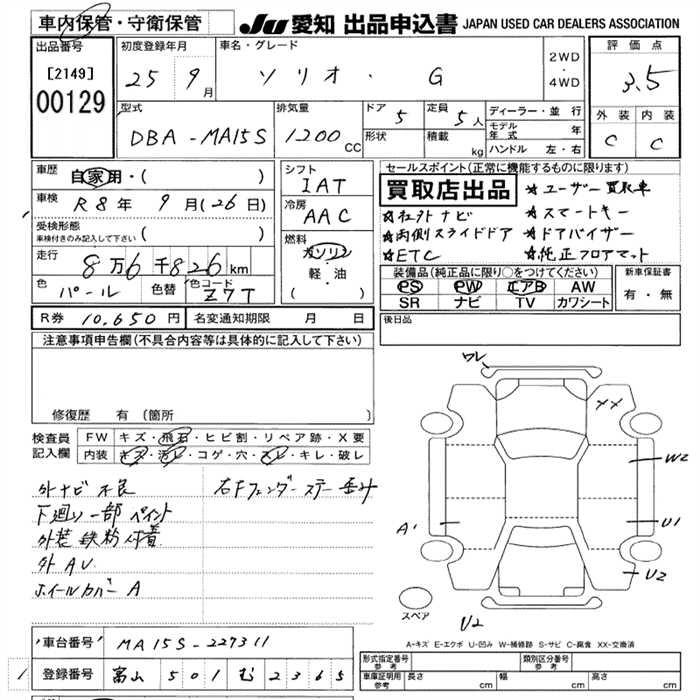 車内保管・守衛保管
JU 愛知 出品申込書 JAPAN USED CAR DEALERS ASSOCIATION
出品番号
[2149]
00129
初度登録年月
25 9月
車名・グレード
ソリオ・G
2WD
・
4WD
評価点
3.5
型式
DBA-MA15S
排気量
1200cc
ドア 5
定員 5人
形状
積載 kg
ディーラー・並行
モデル年式 年
ハンドル 左・右
外装 内装
C C
車歴 自家用・( )
車検 R8年 9月(26日)
受検形態
車検付きのみ記入して下さい ( )
走行 8万6千826km
色 パール 色替 色コード Z7T
シフト
IAT
冷房
AAC
燃料
ガソリン
軽・油
( )
セールスポイント(正常に機能するものに限ります)
買取店出品
☆ユーザー買取車
☆社外ナビ ☆スマートキー
☆両側スライドドア ☆ドアバイザー
☆ETC ☆純正フロアマット
装備品(純正品に限り○をつけてください)
PS PW エアB AW
SR ナビ TV カワシート
新車保証書
有・無
R券 10,650円 名変通知期限 月 日
後日品
注意事項申告欄(不具合内容等は具体的に記入して下さい)
修復歴 有(箇所 )
検査員記入欄
FW キズ・飛石・ヒビ割・リペア跡・X要
内装 キズ・汚レ・コゲ・穴・スレ・キレ・破レ
外ナビ不良
下廻り一部ペイント
外装鉄粉付着
外AV
ホイールカバーA
右Fフェンダーステー歪み
ワレ
XX
W2
A1
U1
U2
スペア
U2
A-キズ E-エクボ U-凹み W-補修跡 S-サビ C-腐食 XX-交換済
車台番号 MA15S-227311
登録番号 富山 501 む 2365
形式指定番号 参考
類別区分番号 参考
車庫証明用 参考
長さ cm
幅 cm
高さ cm